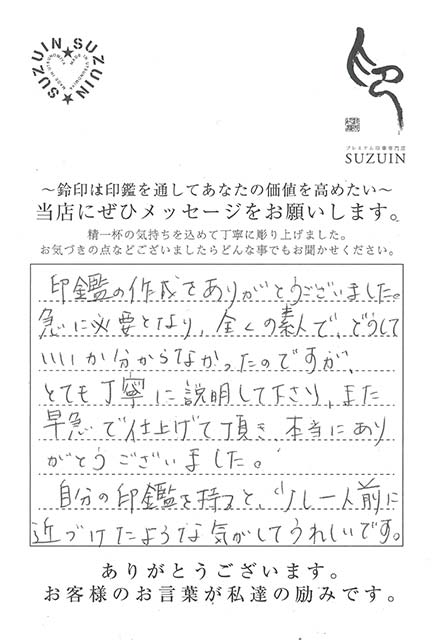 SUZUIN★SUZUIN★
プレミアム印章専門店
SUZUIN
～鈴印は印鑑を通してあなたの価値を高めたい～
当店にぜひメッセージをお願いします。
精一杯の気持ちを込めて丁寧に彫り上げました。
お気づきの点などございましたらどんな事でもお聞かせください。
印鑑の作成をありがとうございました。
急に必要となり、全くの素人で、どうして
いいか分からなかったのですが、
とても丁寧に説明して下さり、また
早急で仕上げて頂き、本当にあり
がとうございました。
自分の印鑑を持つと、少し一人前に
近づけたような気がしてうれしいです。
ありがとうございます。
お客様のお言葉が私達の励みです。